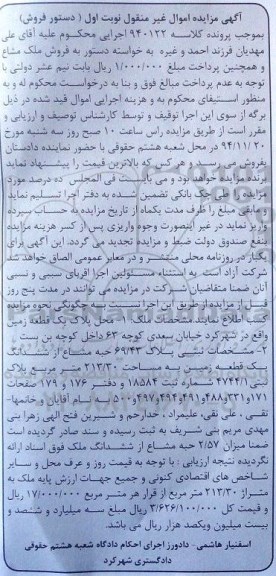 آگهی مزایده اموال غیر منقول نوبت اول ( دستور فروش)
بموجب پرونده کلاسه ۹۴۰۱۲۲ اجرایی محکوم علیه آقای علی
مهدیان فرزند احمد و غیره به خواسته دستور به فروش ملک مشاع
و همچنین پرداخت مبلغ ۱/۰۰۰/۰۰۰ ریال بابت نیم عشر دولتی با
توجه به عدم پرداخت مبالغ فوق و بنا به درخواست محکوم له و به
منظور استیفای محکوم به و هزینه اجرایی اموال قید شده در ذیل
برگه از سوی این اجرا توقیف و توسط کارشناس توصیف و ارزیابی و
مقرر است از طریق مزایده راس ساعت ۱۰ صبح روز سه شنبه مورخ
۹۴/۱۱/۲۰ در محل شعبه هشتم حقوقی با حضور نماینده دادستان
بفروش می رسد و هر کس که بالاترین قیمت را پیشنهاد نماید
برنده مزایده خواهد بود و می بایست فی المجلس ده درصد مورد
مزایده را طی چک بانکی تضمین شده به دفتر اجرا تسلیم نماید
و مابقی مبلغ را ظرف مدت یکماه از تاریخ مزایده به حساب سپرده
واریز نماید در غیر اینصورت وجوه واریزی پس از کسر هزینه مزایده
بنفع صندوق دولت ضبط و مزایده تجدید می گردد. این آگهی برای
یکبار در روزنامه محلی منتشر و در معابر عمومی الصاق خواهد شد
شرکت آزاد است به استثناء مسئولین اجرا اقربای سببی و نسبی
آنان ضمنا متقاضیان شرکت در مزایده می توانند در مدت پنج روز
قبل از مزایده از طریق این اجرا نسبت به چگونگی نحوه مزایده
کسب اطلاع نمایند. مشخصات ملک: ۱- محل پلاک یک قطعه زمین
واقع در شهرکرد خیابان سعدی کوچه ۶۳ داخل کوچه بن بست
۲- مشخصات ثبتی پلاک ۶۹/۴۳ حبه مشاع از ششدانگ
یک قطعه زمین به مساحت ۲۱۳/۳۰ متر مربع پلاک
ثبتی ۴۷۴۴/۱ شماره ثبت ۱۸۵۸۴ و دفتر ۱۷۶ و ۱۷۹ صفحات
تقی ، علی نقی، علیمراد ، خدارحم و شیرین فتح الهی زهرا بنی
مهدی مریم بنی شریف به ثبت رسیده و سند صادر گردیده است
ضمنا میزان ۲/۵۷ حبه مشاع از ششدانگ ملک فوق اسناد ارائه
نگردیده نتیجه ارزیابی : با توجه به قیمت روز و عرف محل و سایر
شاخص های اقتصادی کنونی و جمیع جهات ارزش پایه ملک به
متراژ ۲۱۳/۳۰ متر مربع از قرار هر متر مربع ۱۷/۰۰۰/۰۰۰ ریال
و قیمت کل ۳/۶۲۶/۱۰۰/۰۰۰ مبلغ سه میلیارد و ششصد و
بیست میلیون ویکصد هزار ریال می باشد.
اسفنیار هاشمی- دادورز اجرای احکام دادگاه شعبه هشتم حقوقی
دادگستری شهرکرد